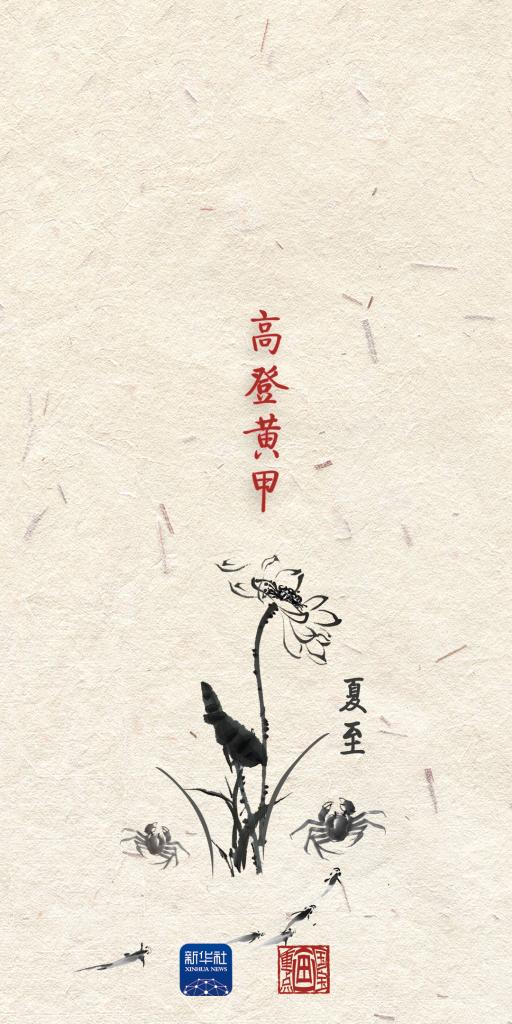 高登黄甲
夏至
新华社
XINHUA NEWS